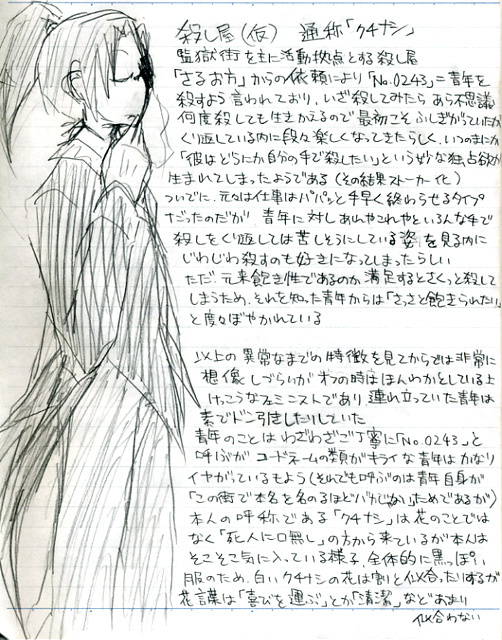 殺し屋(仮) 通称「クチナシ」
監獄街を主に活動拠点とする殺し屋
「さるお方」からの依頼により「No.0243」=青年を
殺すよう言われており、いざ殺してみたら あら不思議
何度殺しても生きかえるので最初こそふしぎがっていたが
くり返している内に段々楽しくなってきたらしく、いつのまにか
「彼はどうにか自分の手で殺したい」という妙な独占欲が
生まれてしまったようである(その結果ストーカー化)
ついでに、元々は仕事はパパッと手早く終わらせるタイプ
だったのだが 青年に対しあんやこれやといろんな手で
殺しをくり返しては苦しそうにしている姿を見る内に
じわじわ殺すのも好きになってしまったらしい
ただ、元来飽き性であるのか 満足するとさくっと殺して
しまうため、それを知った青年からは「さっさと飽きられたい」
と度々ぼやかれている
以上の異常なまでの特徴を見てからでは非常に
想像しづらいが オフの時はほんわかとしている上
けっこうなフェミニストであり 連れ立っていた青年は
素でドン引きしたりしていた
青年のことは わざわざご丁寧に「No.0243」と
呼ぶが コードネームの類がキライな青年はかなり
イヤがっているもよう(それでも呼ぶのは青年自身が
「この街で本名を名のるほどバカじゃない」ためであるが)
本人の呼称である「クチナシ」は花のことでは
なく「死人に口無し」の方から来ているが本人は
そこそこ気に入っている様子、全体的に黒っぽい
服のため、白いクチナシの花は割と似合ったりするが
花言葉は「喜びを運ぶ」とか「清潔」などあまり
似合わない